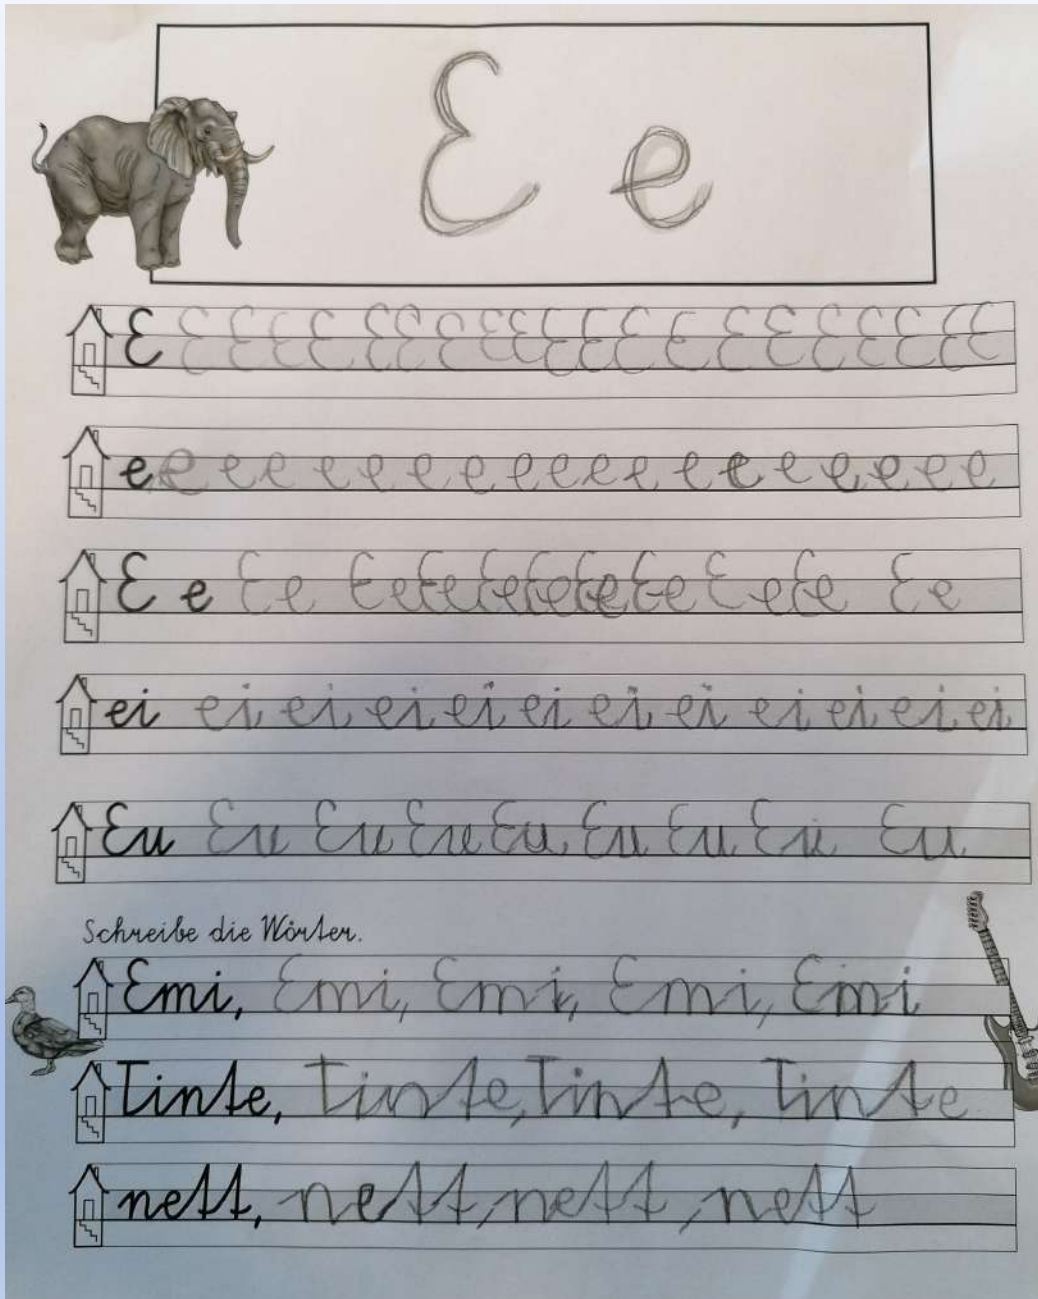 E e
E E E E E E E E E E E E E E E E E E E E
e e e e e e e e e e e e e e e e e e e
E e E e E e E e E e E e E e E e E e E e E e
ei ei ei ei ei ei ei ei ei ei ei ei
Eu Eu Eu Eu Eu Eu Eu Eu Eu
Schreibe die Wörter.
Emi, Emi, Emi, Emi, Emi
Tinte, Tinte, Tinte, Tinte
nett, nett, nett, nett